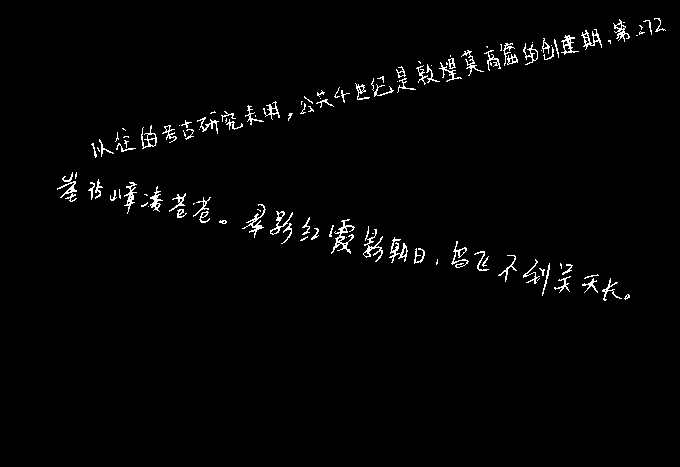 以往的考古研究表明,公共4世纪是敦煌莫高窟的创建期,第272
崖沓嶂凌苍苍。翠影红霞影朝日,鸟飞不到吴天长。